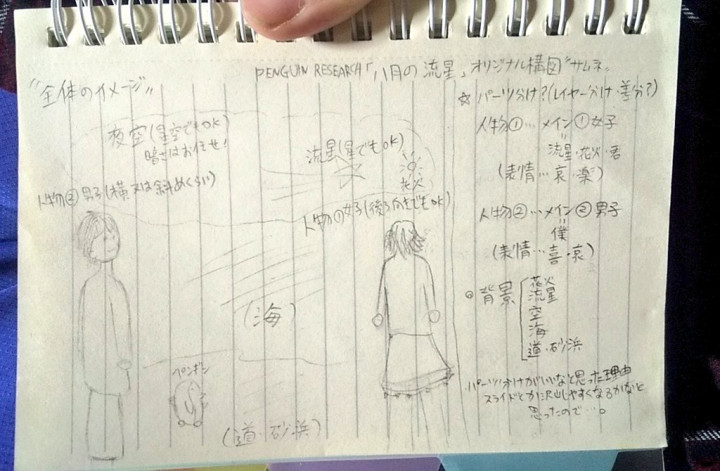 PENGUIN RESEARCH「八月の流星」オリジナル構図 サムネ。
"全体のイメージ"
夜空(星空でもOK)
暗さはお任せ!
流星(星でもOK)
花火
人物② 男子(横 又は斜めぐらい)
人物① 女子(後ろ向きでもOK)
(海)
ペンギン
(道・砂浜)
☆ パーツ分け?(レイヤー分け・差分?)
人物①…メイン① 女子
=
流星・花火・君
(表情…哀・楽)
人物②…メイン② 男子
=
僕
(表情…喜・哀)
。背景
花火
流星
空
海
道・砂浜
パーツ分けがいいなと思った理由
スライドとか
しやすくなるかなと
思ったので…。